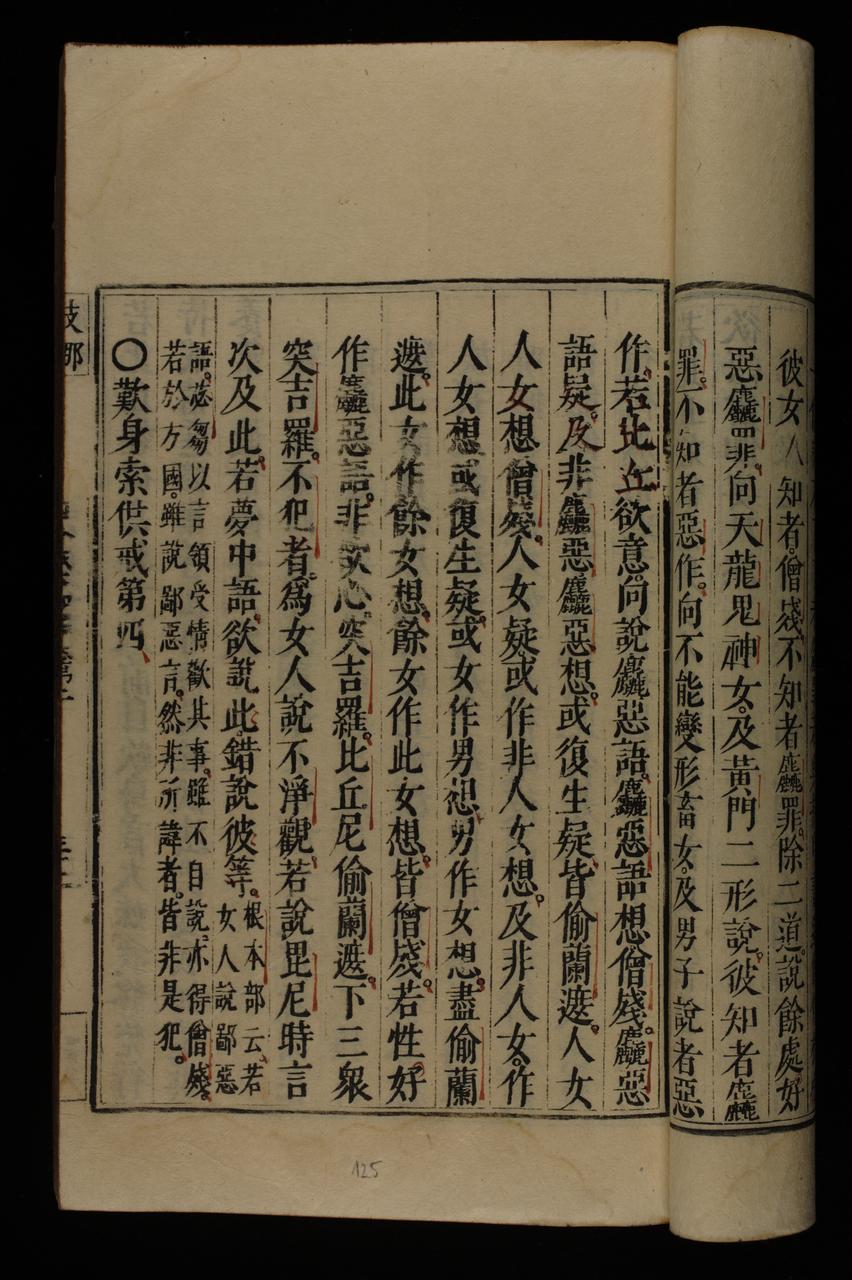 彼女人知者。僧殘。不知者麤罪。除二道。說餘處好
惡麤罪。非向天龍鬼神女。及黃門二形說。彼知者麤
罪。不知者惡作。向不能變形畜女。及男子說者惡
作。若比丘欲意。向說麤惡語。麤惡語想僧殘。麤惡
語疑。及非麤惡麤惡想。或復生疑。皆偷蘭遮。人女
人女想僧殘。人女疑或作非人女想。及非人女。作
人女想。或復生疑。或女作男想。男作女想。盡偷蘭
遮。此女作餘女想。餘女作此女想。皆僧殘。若性好
作麤惡語。非欲心。突吉羅。比丘尼偷蘭遮。下三眾
突吉羅。不犯者。為女人說不淨觀。若說毘尼時言
次及此。若夢中語。欲說此。錯說彼等。根本部云、若
女人說鄙惡
語。苾芻以言領受情歡其事。雖不自說。亦得僧殘。
若於方國。雖說鄙惡言。然非所諱者。皆非是犯。
〇歎身索供戒第四、
支那
125